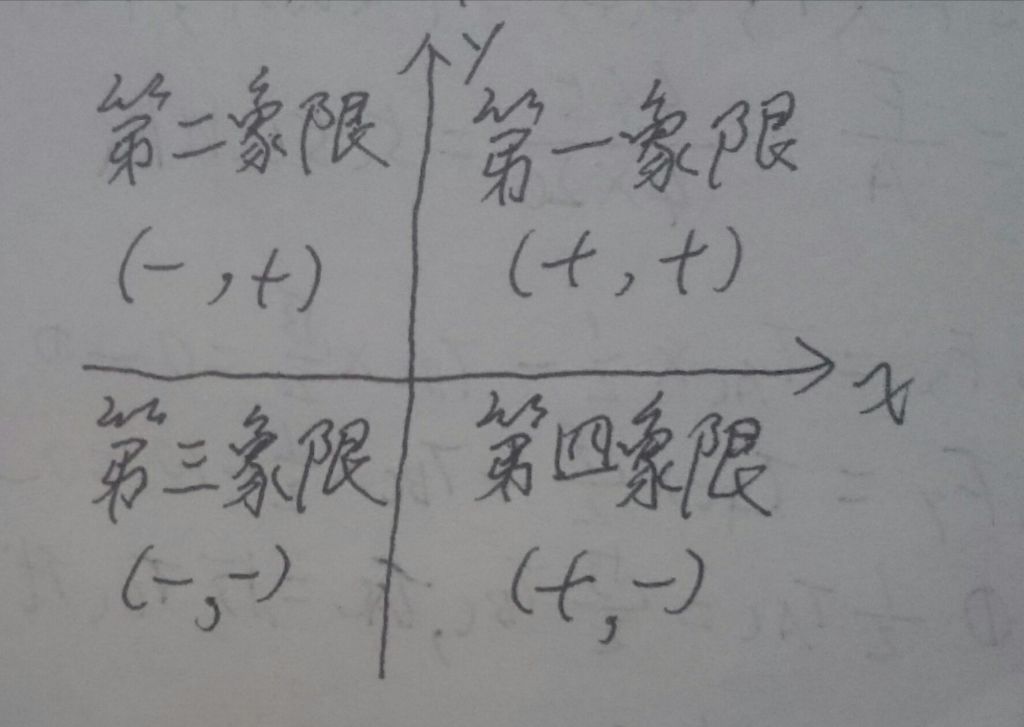 y
第二象限 第一象限
(-,+) (+,+)
x
第三象限 第四象限
(-,-) (+,-)